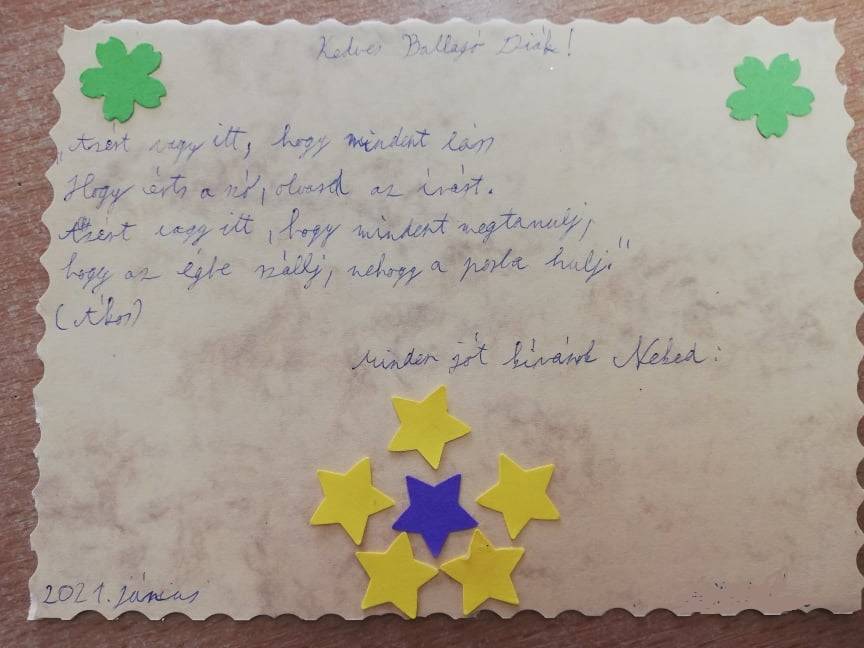 Kedves Ballagó Diák!
„Azért vagy itt, hogy mindent láss
Hogy érts a szó, olvasd az írást.
Azért vagy itt, hogy mindent megtanulj,
hogy az égbe szállj, nehogy a porba hulj."
(Ákos)
Minden jót kívánok Neked:
2021. június